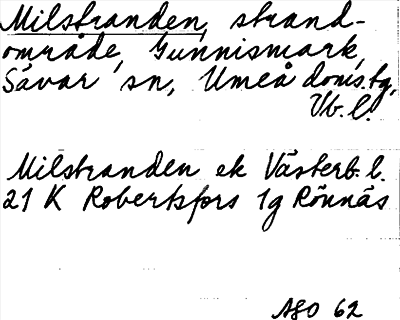 Milstranden, strand-
område, Gunnismark,
Sävar sn, Umeå doms.tg,
Vb. l.
Milstranden ek Västerb. l.
21 K Robertsfors 1g Rönnäs
ASO 62